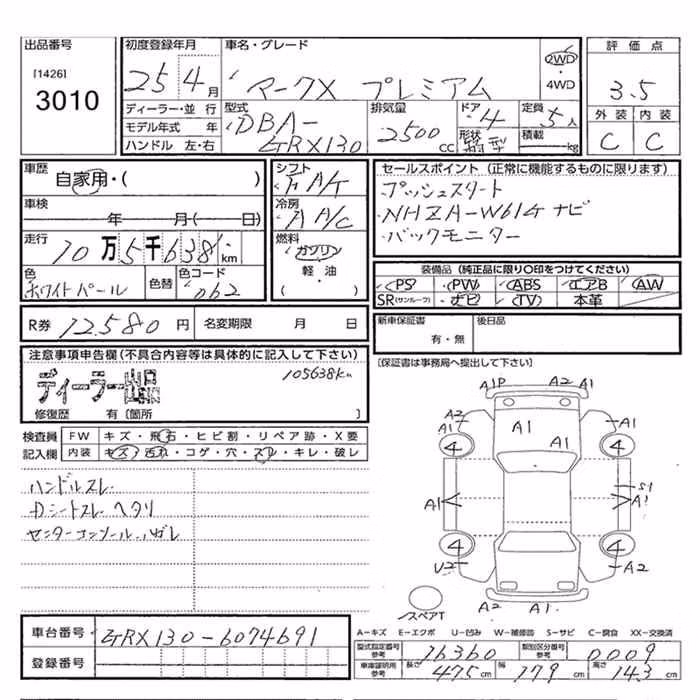 出品番号
[1426]
3010
初度登録年月
25 4 月
車名・グレード
マークX プレミアム
2WD
・
4WD
評価点
3.5
外装 内装
C C
ディーラー・並行
モデル年式 年
ハンドル 左・右
型式
DBA-
GRX130
排気量
2500 cc
ドア 4
形状
定員 5人
積載 kg
車歴
自家用・( )
車検
年 月( 日)
走行
10万5千638km
色
ホワイトパール
色替
色コード
062
シフト
F A/T
冷房
A A/C
燃料
ガソリン
軽・油
( )
セールスポイント (正常に機能するものに限ります)
プッシュスタート
NHZA-W61G ナビ
バックモニター
装備品 (純正品に限り〇印をつけてください)
PS PW ABS エアB AW
SR(サンルーフ) ナビ TV 本革
R券 12,580 円 名変期限 月 日
新車保証書
有・無
後日品
[保証書は事務局へ提出して下さい]
注意事項申告欄(不具合内容等は具体的に記入して下さい)
105638Km
ディーラー出品
修復歴 有〔箇所 〕
検査員
記入欄
FW キズ・飛石・ヒビ割・リペア跡・X要
内装 キズ・汚れ・コゲ・穴・スレ・キレ・破レ
ハンドルスレ
Dシートスレ ヘタリ
センターコンソールハガレ
A1P A2 A1
A2 A1
A1 A1
A2 A1
4 4
A1
S1
A1
4 4
U2
A2
スペアT
A2 A1
車台番号 GRX130-6074691
登録番号
A-キズ E-エクボ U-凹み W-補修跡 S-サビ C-腐食 XX-交換済
型式指定番号 参考 16360 類別区分番号 参考 0009
車庫証明用 参考 長さ 475cm 幅 179cm 高さ 143cm